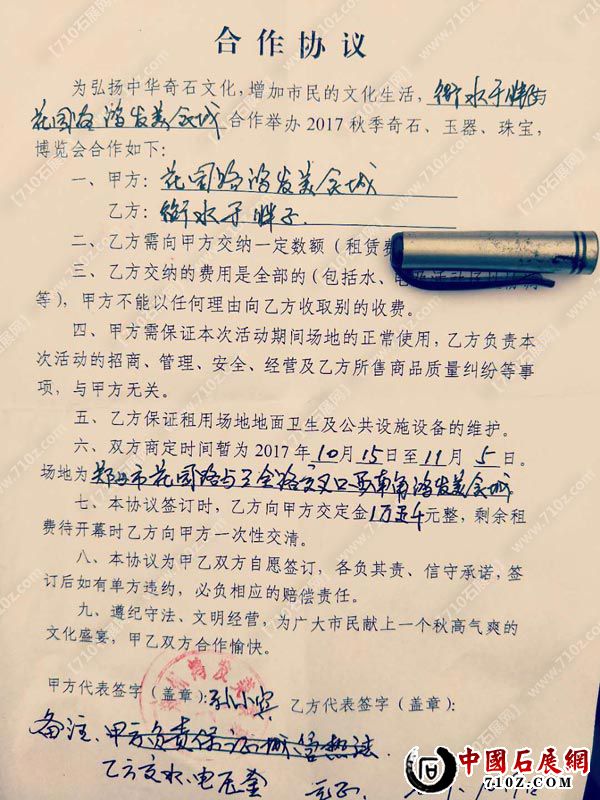 合作协议
为弘扬中华奇石文化，增加市民的文化生活，衡水于胖子与
花园路鸿发美食城合作举办2017秋季奇石、玉器、珠宝，
博览会合作如下：
一、甲方：花园路鸿发美食城
乙方：衡水于胖子
二、乙方需向甲方交纳一定数额（租赁费
三、乙方交纳的费用是全部的（包括水、
等），甲方不能以任何理由向乙方收取别的收费。
四、甲方需保证本次活动期间场地的正常使用，乙方负责本
次活动的招商、管理、安全、经营及乙方所售商品质量纠纷等事
项，与甲方无关。
五、乙方保证租用场地地面卫生及公共设施设备的维护。
六、双方商定时间暂为2017年10月15日至11月5日。
场地为郑州市花园路与三全路交叉口西南角鸿发美食城
七、本协议签订时，乙方向甲方交定金1万五千元整，剩余租
费待开幕时乙方向甲方一次性交清。
八、本协议为甲乙双方自愿签订，各负其责、信守承诺，签
订后如有单方违约，必负相应的赔偿责任。
九、遵纪守法、文明经营，为广大市民献上一个秋高气爽的
文化盛宴，甲乙双方合作愉快。
甲方代表签字（盖章）：孙小宾 乙方代表签字（盖章）：
备注、甲方负责
乙方交水、电
中國石展網
710z.com
【710石展网】
www.710z.com